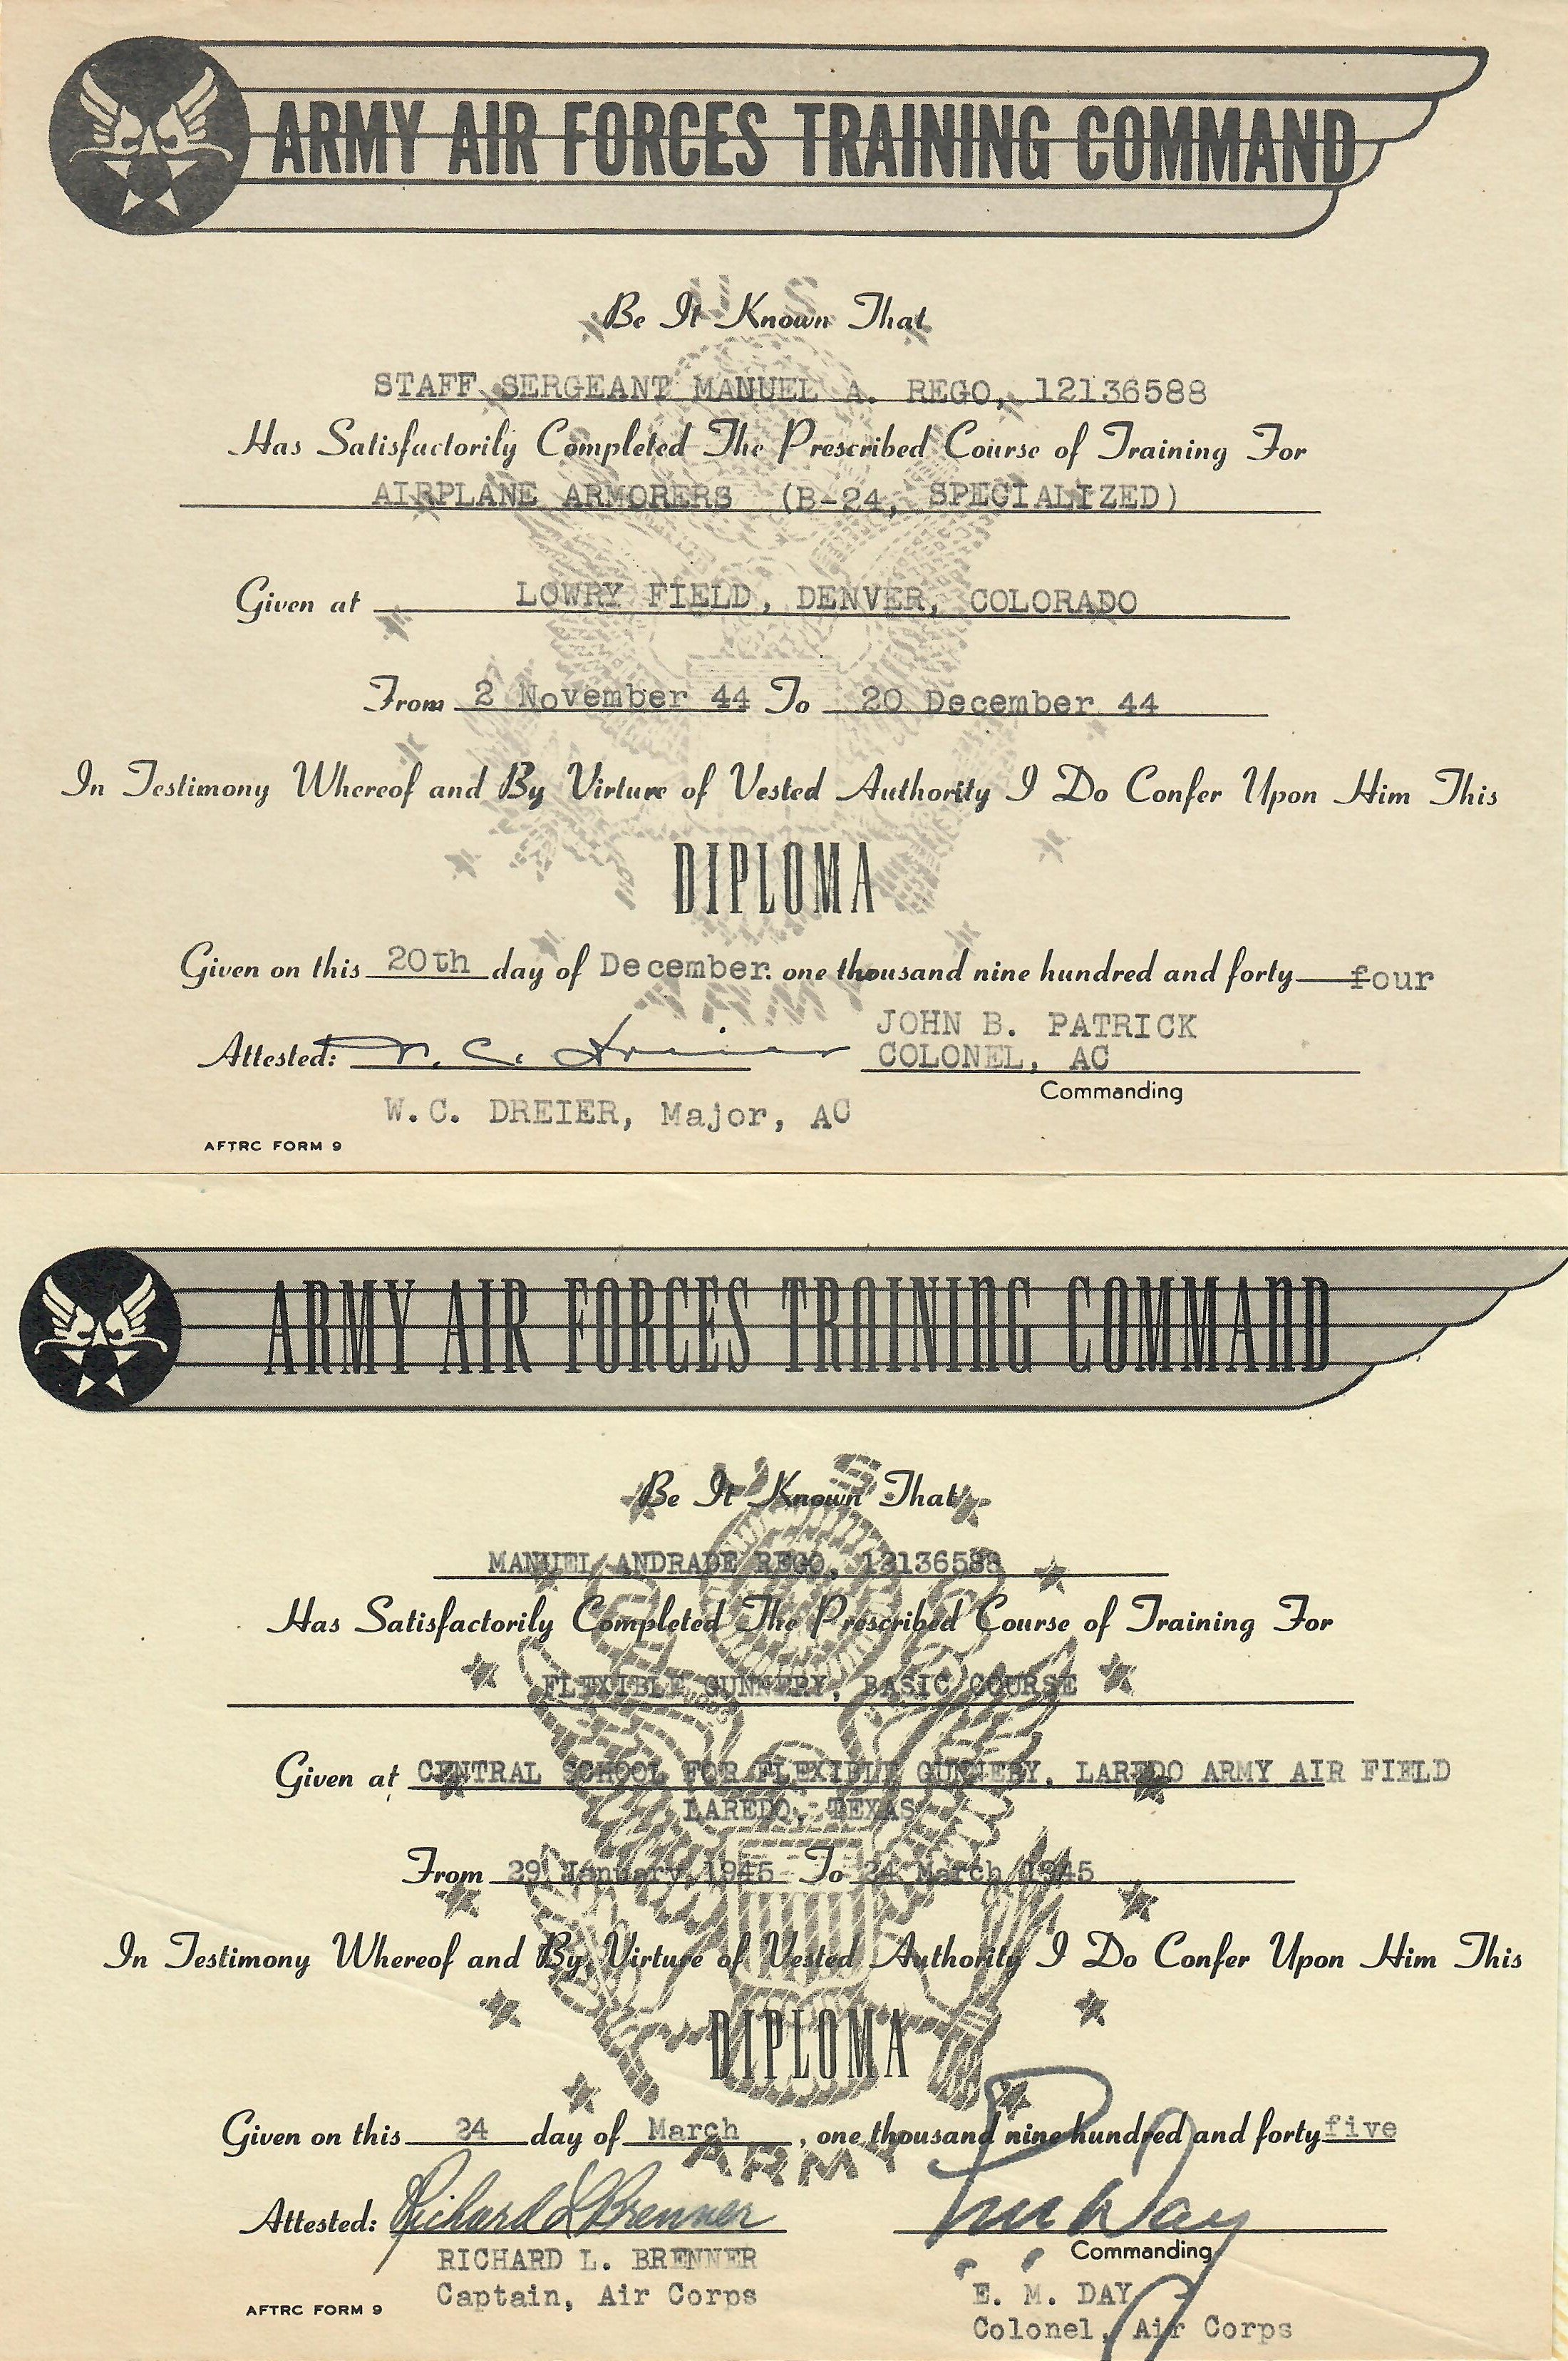 ARMY AIR FORCES TRAINING COMMAND
U.S.
Be It Known That
STAFF SERGEANT MANUEL A. REGO, 12136588
Has Satisfactorily Completed The Prescribed Course of Training For
AIRPLANE ARMORERS (B-24, SPECIALIZED)
Given at LOWRY FIELD, DENVER, COLORADO
From 2 November 44 To 20 December 44
In Testimony Whereof and By Virture of Vested Authority I Do Confer Upon Him This
DIPLOMA
Given on this 20th day of December. one thousand nine hundred and forty four
ARMY
JOHN B. PATRICK
Attested: W. C. Dreier COLONEL, AC
Commanding
W.C. DREIER, Major, AC
AFTRC FORM 9
ARMY AIR FORCES TRAINING COMMAND
U.S.
Be It Known That
MANUEL ANDRADE REGO, 12136588
Has Satisfactorily Completed The Prescribed Course of Training For
FLEXIBLE GUNNERY, BASIC COURSE
Given at CENTRAL SCHOOL FOR FLEXIBLE GUNNERY, LAREDO ARMY AIR FIELD
LAREDO, TEXAS
From 29 January 1945 To 24 March 1945
In Testimony Whereof and By Virture of Vested Authority I Do Confer Upon Him This
DIPLOMA
Given on this 24 day of March, one thousand nine hundred and forty five
ARMY
Attested: Richard L Brenner E M Day
Commanding
RICHARD L. BRENNER
Captain, Air Corps
E. M. DAY
Colonel, Air Corps
AFTRC FORM 9